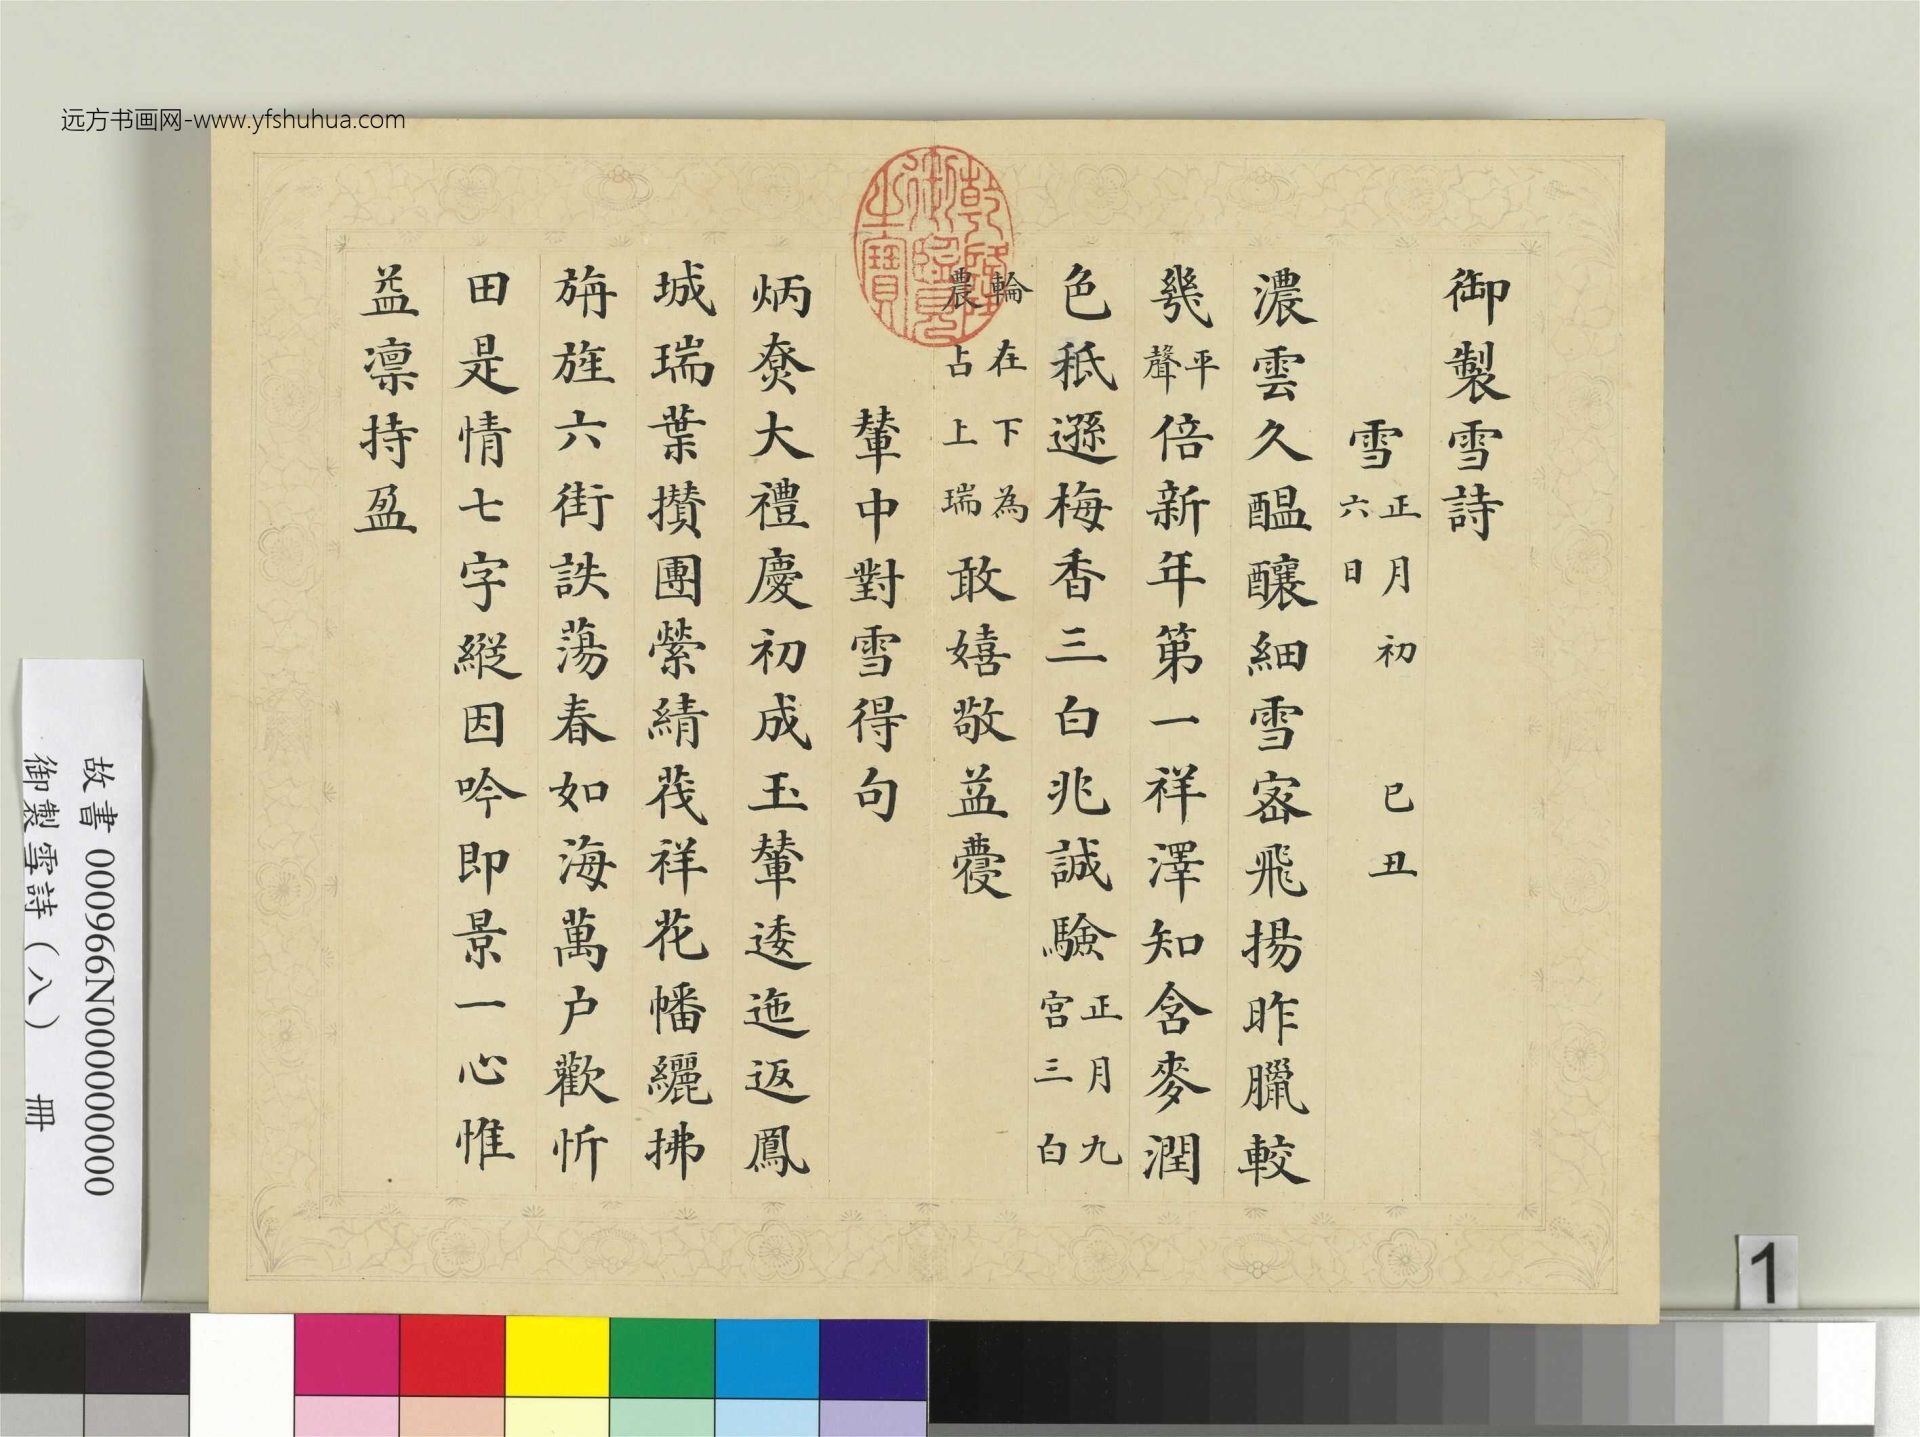 远方书画网-www.yfshuhua.com
乾隆御覽之寶
御製雪詩
雪正月初六日 己丑
濃雲久醞釀細雪密飛揚昨臘較
幾平聲倍新年第一祥澤知含麥潤
色秖遜梅香三白兆誠驗正月九宮三白
輪在下為農占上瑞敢嬉敬益蘉
輦中對雪得句
炳奏大禮慶初成玉輦逶迤返鳳
城瑞葉攅團縈綪茷祥花幡纚拂
旃旌六街詄蕩春如海萬户歡忻
田是情七字縱因吟即景一心惟
益凛持盈
故書 000966N000000000
御製雪詩（八） 冊
1